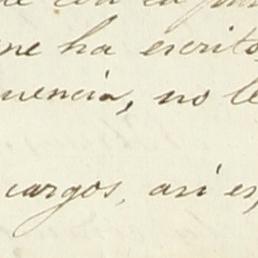 me ha escrito
uencia, no le
cargos, así es,